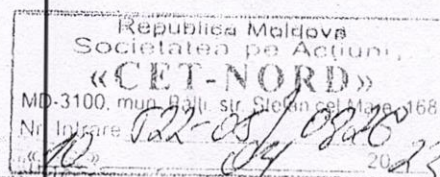 Republica Moldova
Societatea pe Acţiuni,
«CET-NORD»
MD-3100, mun. Bălţi, str. Ştefan cel Mare, 168
Nr. Intrare T22-05/
«10» 04 20 23